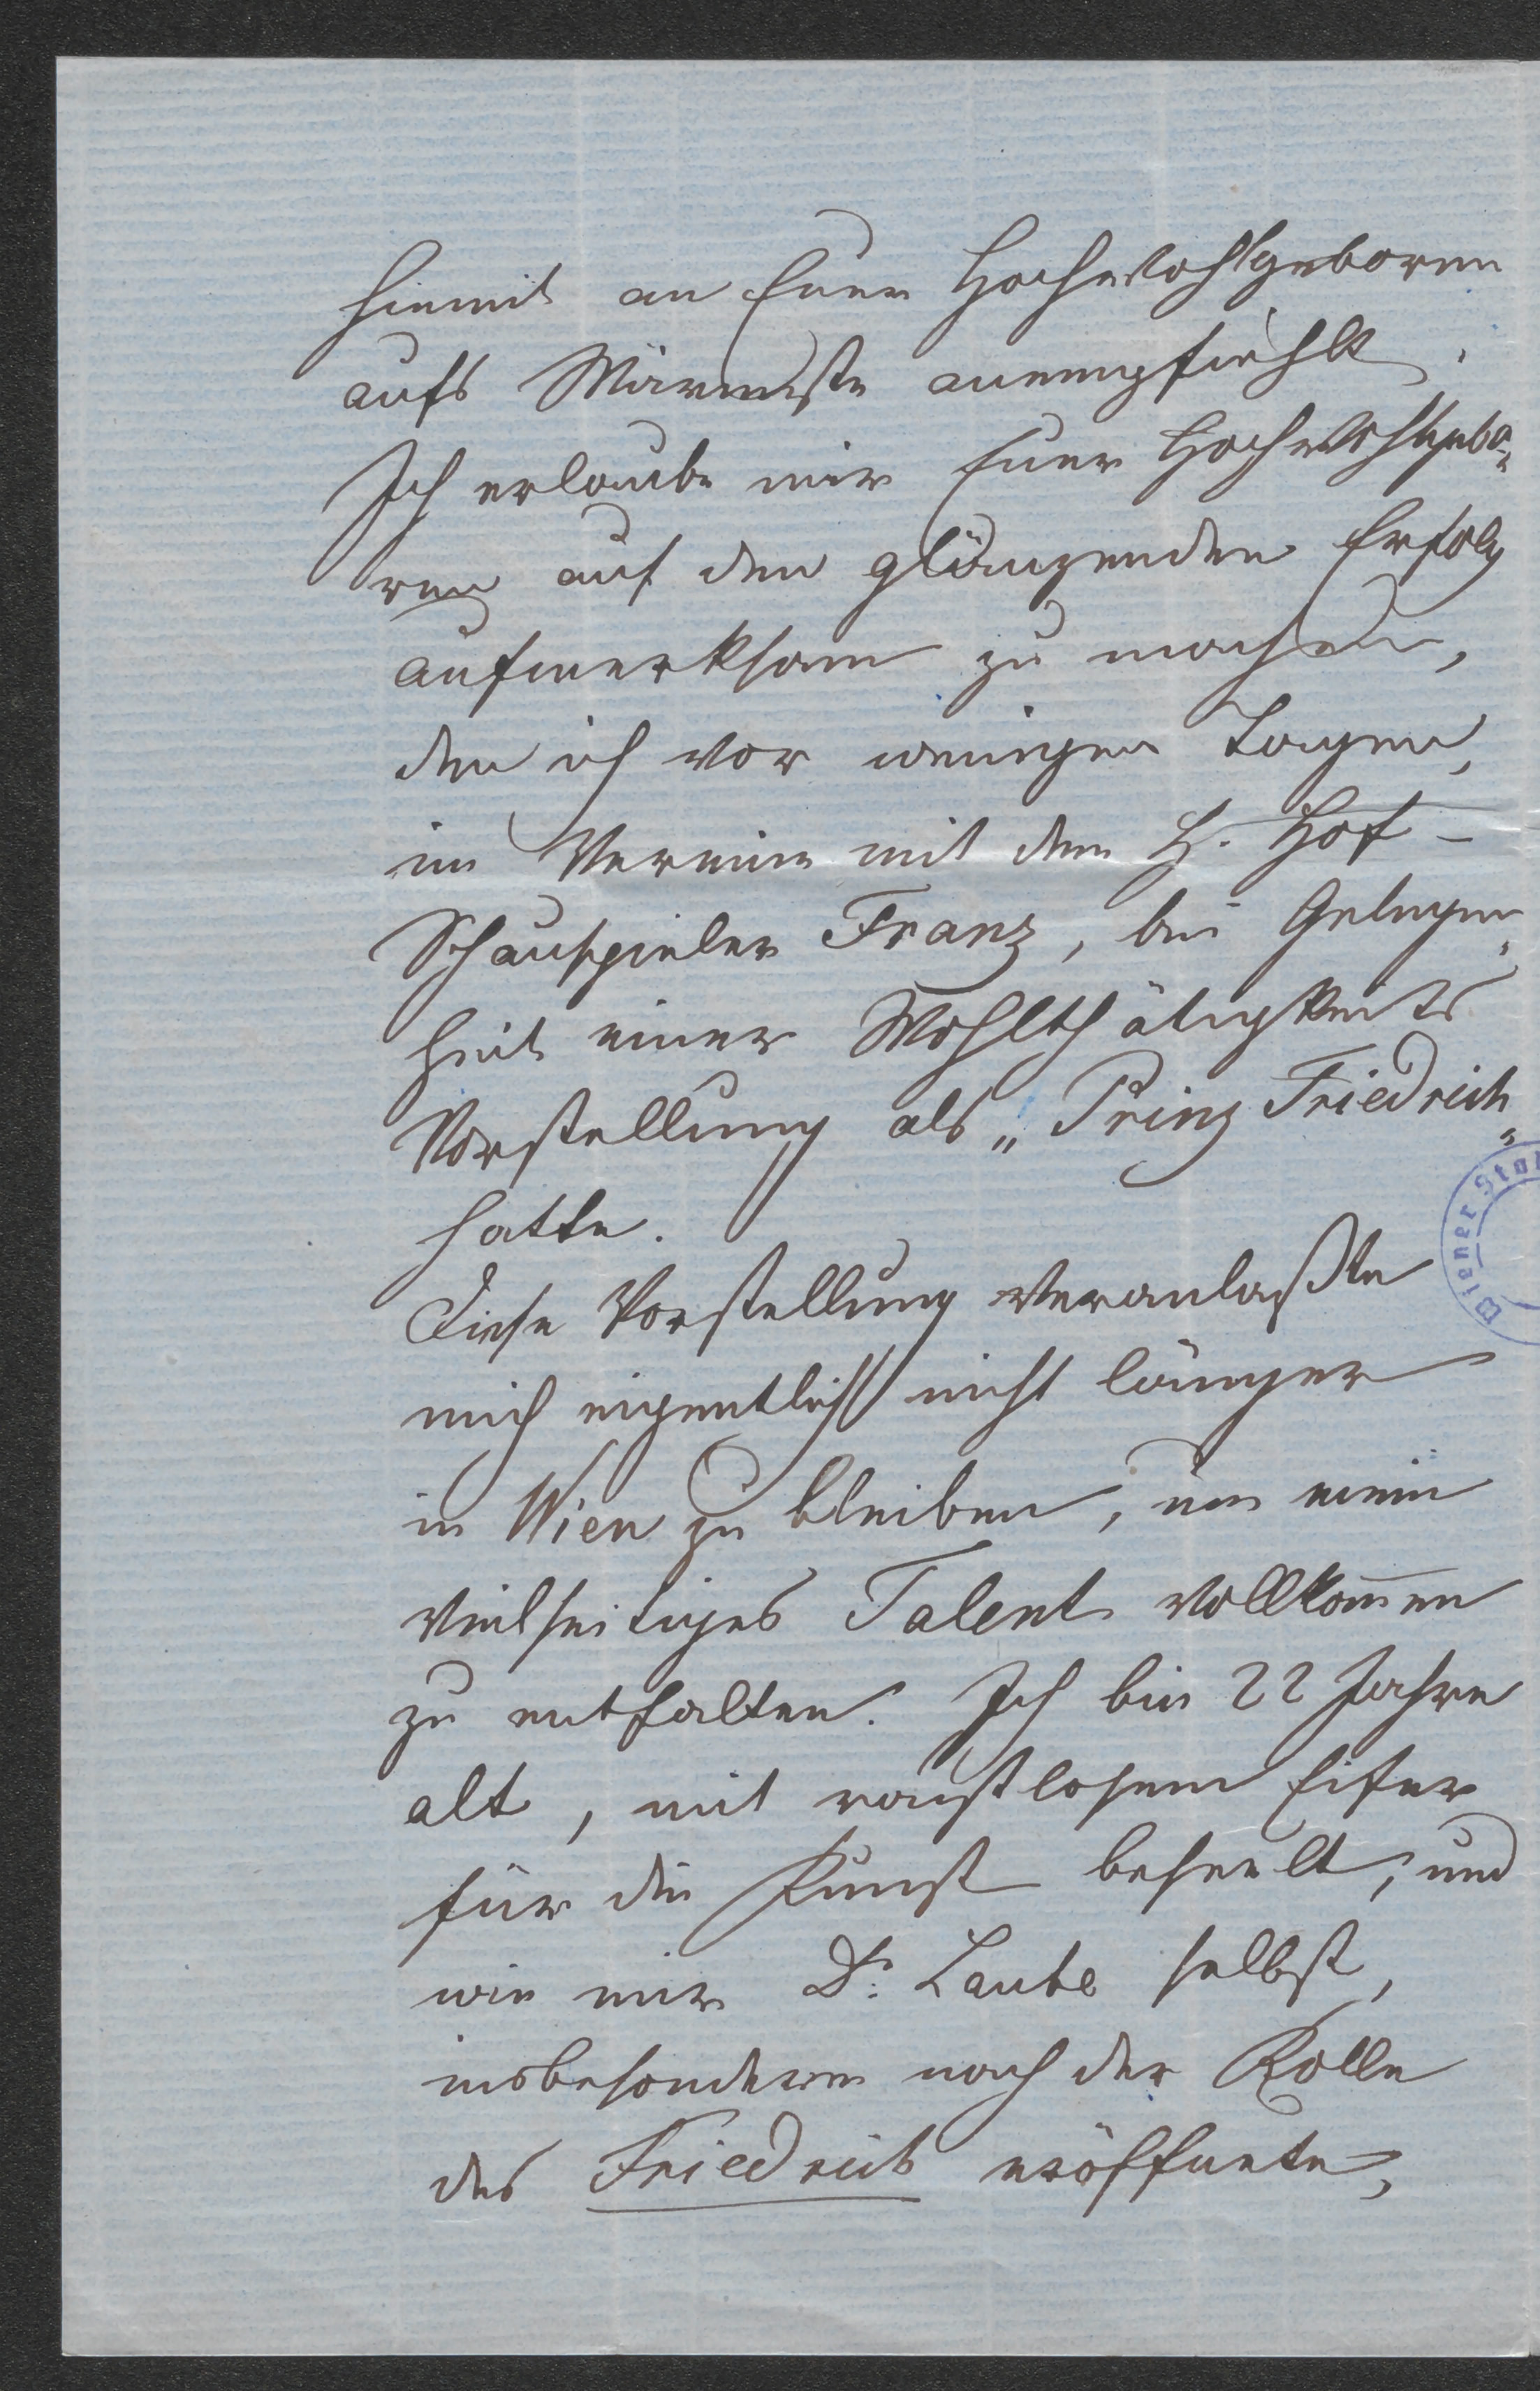 hiemit an Euer Hochwohlgeboren
aufs Wärmste anempfiehlt.
Ich erlaube mir Euer Hochwohlgebo-
ren auf den glänzenden Erfolg
aufmerksam zu machen,
den ich vor wenigen Tagen,
im Vereine mit dem H. Hof-
Schauspieler Franz, bei Gelegen-
heit einer Wohlthätigkeits
Vorstellung als „Prinz Friedrich„
hatte.
Diese Vorstellung veranlaßte
mich eigentlich nicht länger
in Wien zu bleiben, um mein
vielseitiges Talent vollkom̅en
zu entfalten. Ich bin 22 Jahre
alt, mit rastlosem Eifer
für die Kunst beseelt, und
wie mir Dr. Laube selbst,
insbesondere nach der Rolle
des Friedrich eröffnete,
Wiener Sta